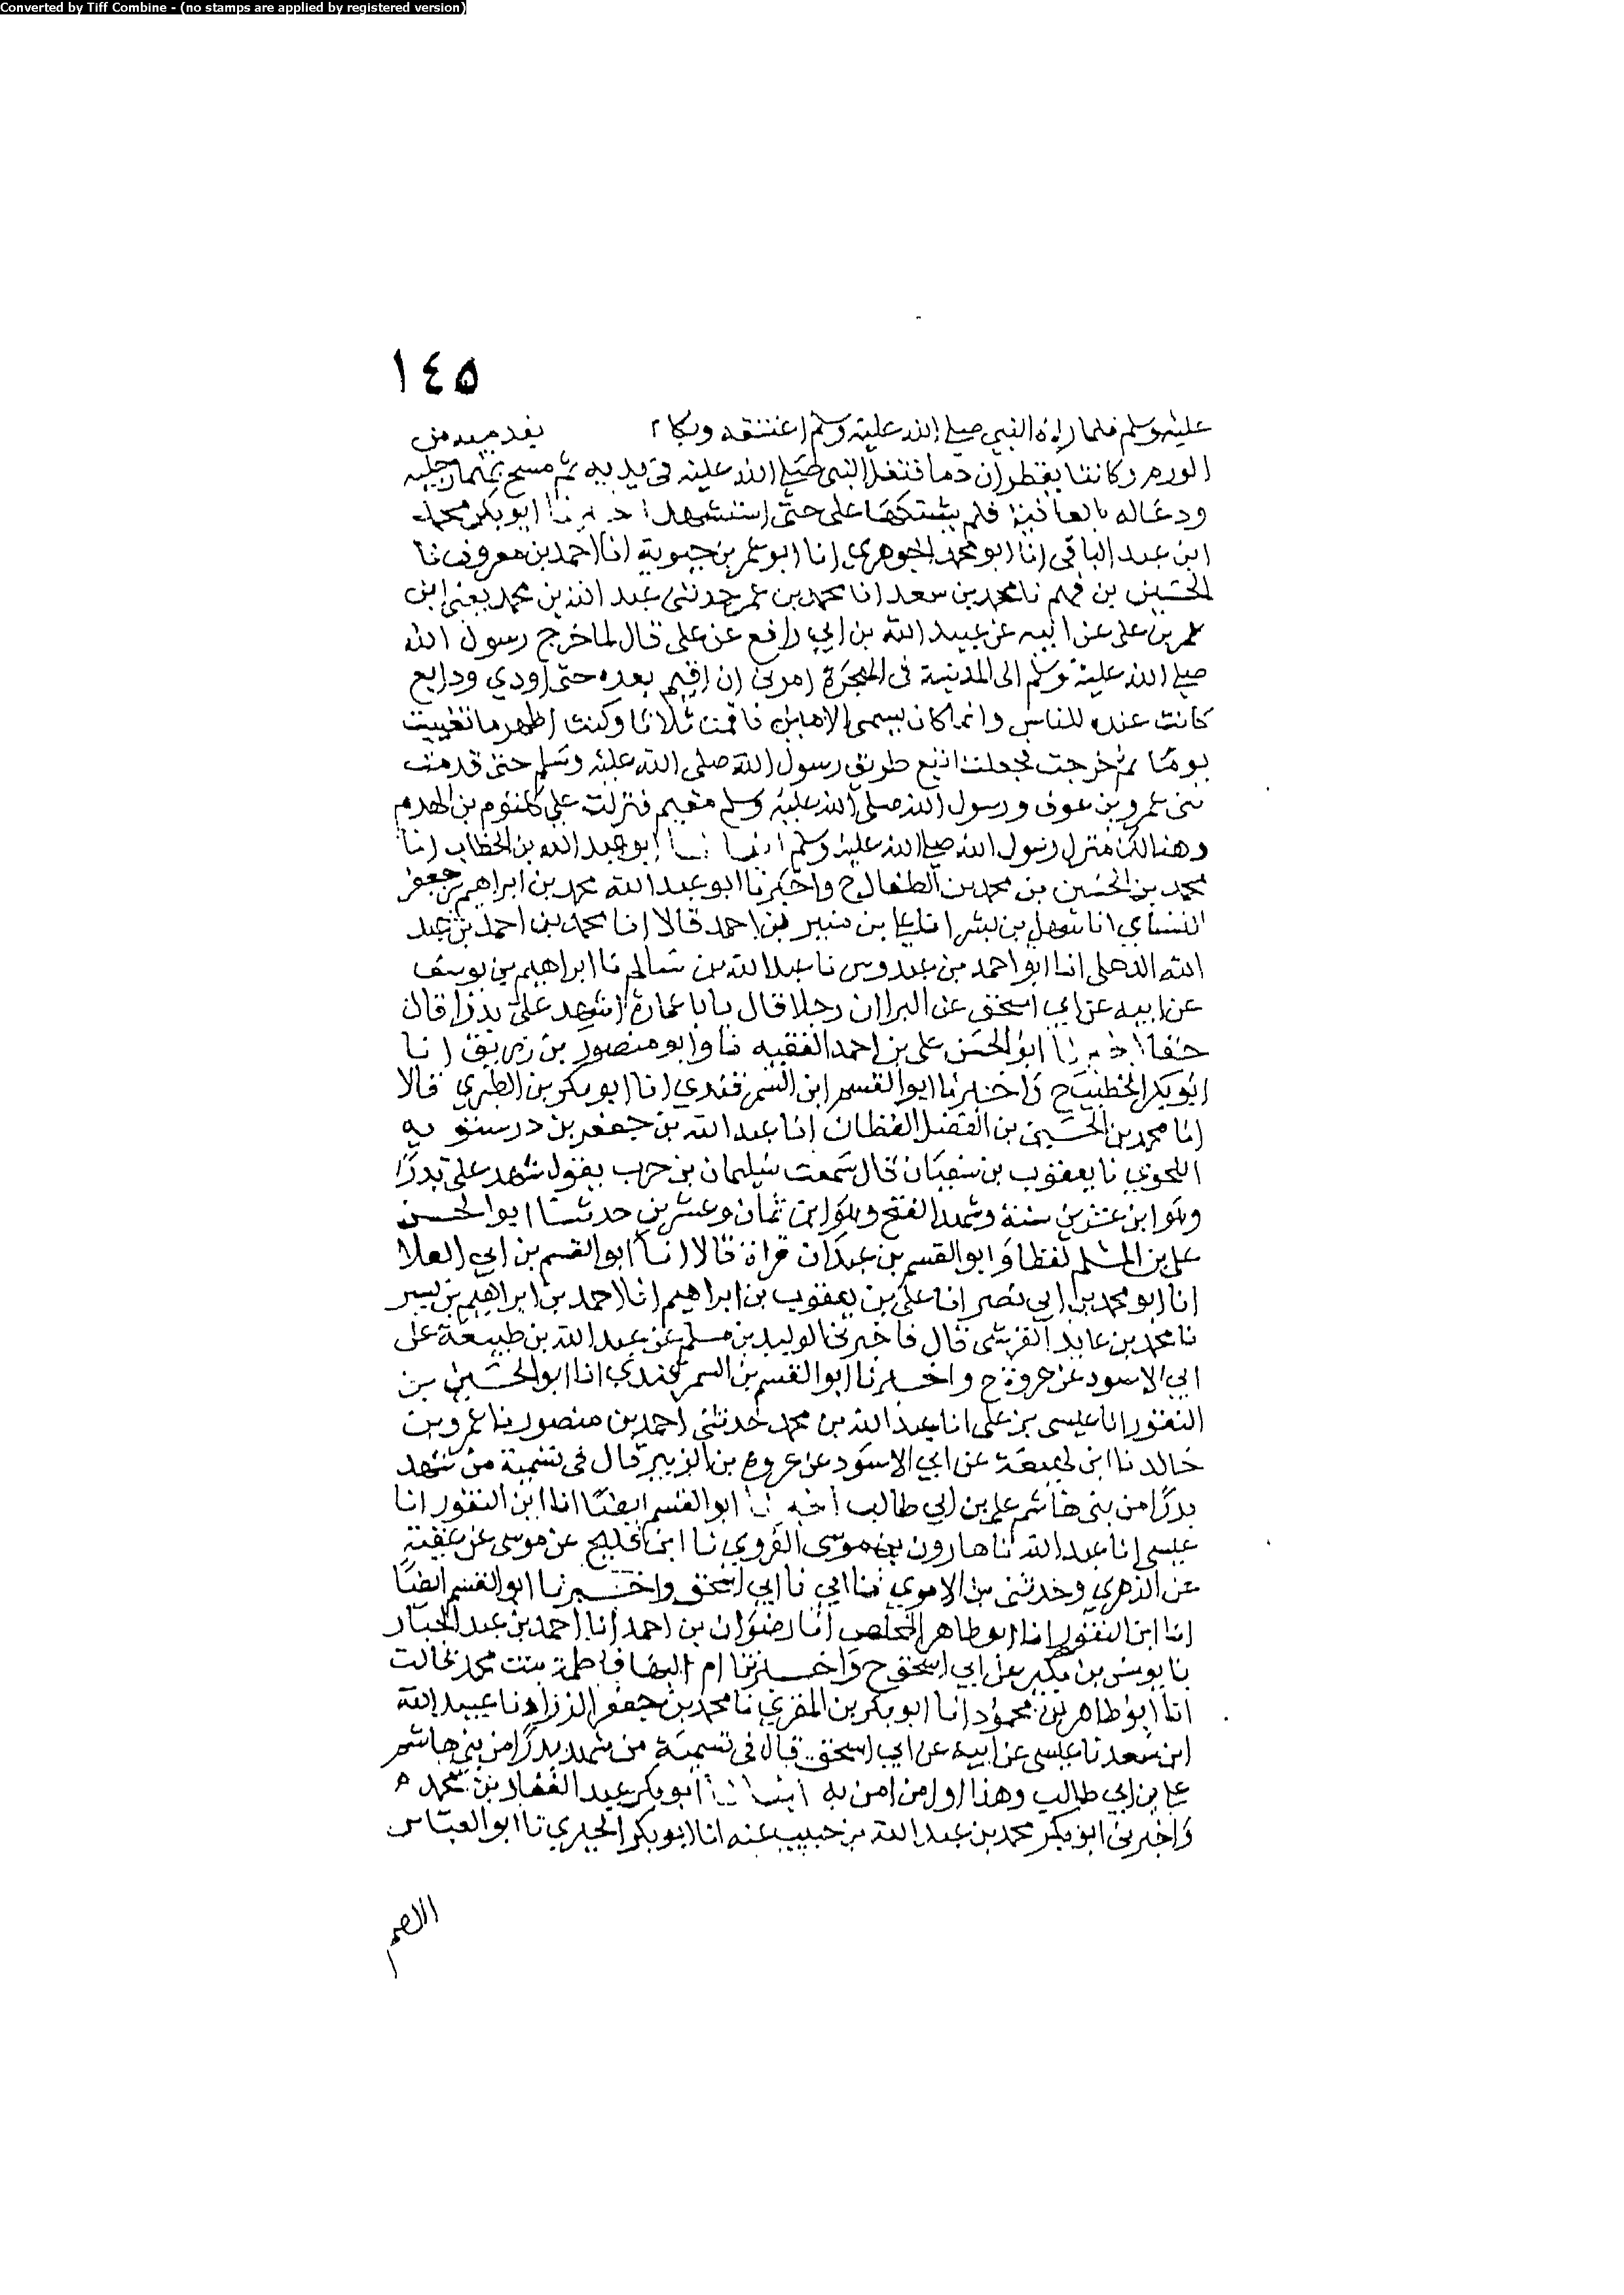 Converted by Tiff Combine - (no stamps are applied by registered version)
١٤٥
عليه وسلم فلما راه النبي صلى الله عليه وسلم اعتنقه وبكا بقدميه من
الورم وكانتا يقطران دما فتفل النبى صلى الله عليه فى يديه ثم مسح بهما رجليه
ودعا له بالعافية فلم يشتكهما على حتى استشهد اخبرنا ابو بكر محمد
ابن عبد الباقى انا ابو محمد الجوهرى انا ابو عمر بن حيوية انا احمد بن معروف نا
الحسين بن فهم نا محمد بن سعد انا محمد بن عمر حدثنى عبد الله بن محمد يعنى ابن
عمر بن على عن ابيه عن عبيد الله بن ابي رافع عن على قال لما خرج رسول الله
صلى الله عليه وسلم الى المدينة فى الهجرة امرنى ان اقيم بعده حتى اودي ودايع
كانت عنده للناس وانما كان يسمى الامين فاقمت ثلاثا وكنت اظهر ما تغيبت
يوما ثم خرجت فجعلت اتبع طريق رسول الله صلى الله عليه وسلم حتى قدمت
بنى عمرو بن عوف ورسول الله صلى الله عليه وسلم مقيم فنزلت على كلثوم بن الهدم
وهنالك منزل رسول الله صلى الله عليه وسلم انبانا ابو عبد الله بن الخطاب انا
محمد بن الحسين بن محمد بن الطفال ح واخبرنا ابو عبد الله محمد بن ابراهيم بن جعفر
النسائي انا سهل بن بشر انا على بن منير بن احمد قالا انا محمد بن احمد بن عبد
الله الذهلى انا ابو احمد بن عبدوس نا عبد الله بن سالم نا ابراهيم بن يوسف
عن ابيه عن ابي اسحق عن البرا ان رجلا قال يابا عمارة اشهد على بدرا قال
حقا اخبرنا ابو الحسن على بن احمد الفقيه نا وابو منصور بن زريق انا
ابو بكر الخطيب ح واخبرنا ابو القسم ابن السمرقندي انا ابو بكر بن الطبري قالا
انا محمد بن الحسين بن الفضل القطان انا عبد الله بن جعفر بن درستويه
النحوي نا يعقوب بن سفيان قال سمعت سليمان بن حرب يقول شهد على بدرا
وهو ابن عشرين سنة وشهد الفتح وهو ابن ثمان وعشرين حدثنا ابو الحسن
على بن المسلم لفظا وابو القسم بن عبدان قراة قالا انا ابو القسم بن ابي العلا
انا ابو محمد بن ابي نصر انا على بن يعقوب بن ابراهيم انا احمد بن ابراهيم بن بسر
نا محمد بن عايد القرشى قال فاخبرنى الوليد بن مسلم عن عبد الله بن لهيعة عن
ابي الاسود عن عروة ح واخبرنا ابو القسم بن السمرقندي انا ابو الحسين بن
النقور انا عيسى بن على انا عبد الله بن محمد حدثنى احمد بن منصور نا عمرو بن
خالد نا ابن لهيعة عن ابي الاسود عن عروة بن الزبير قال فى تسمية من شهد
بدرا من بنى هاشم على بن ابي طالب اخبرنا ابو القسم ايضا انا ابن النقور انا
عيسى انا عبد الله نا هارون بن موسى الفروي نا ابن فليح عن موسى عن عقبة
عن الزهري وحدثنى بن الاموي نا ابي نا ابي اسحق واخبرنا ابو القسم ايضا
انا ابن النقور انا ابو طاهر المخلص انا رضوان بن احمد انا احمد بن عبد الجبار
نا يونس بن بكير عن ابي اسحق ح واخبرتنا ام البها فاطمة بنت محمد قالت
انا ابو طاهر بن محمود انا ابو بكر بن المقري نا محمد بن جعفر الزراد نا عبيد الله
ابن سعد نا عيسى عن ابيه عن ابي اسحق قال فى تسمية من شهد بدرا من بنى هاشم
على بن ابي طالب وهذا اول من امن به انبانا ابو بكر عبد الغفار بن محمد
واخبرنى ابو بكر محمد بن عبد الله بن حبيب عنه انا ابو بكر الحيري نا ابو العباس
الاصم